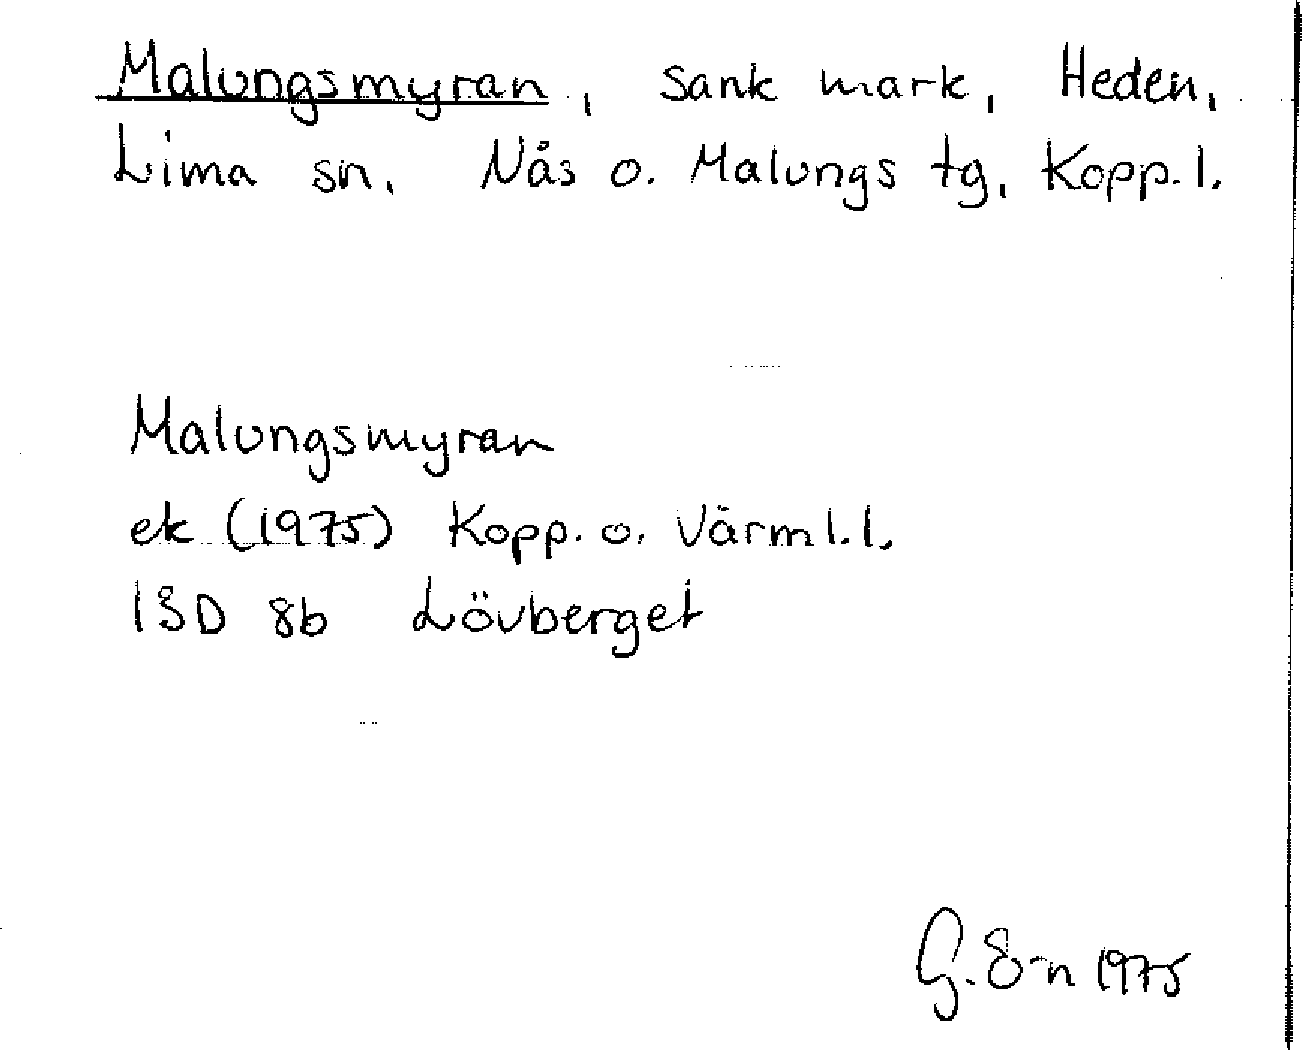 Malungsmyran, sank mark, Heden,
Lima sn. Nås o. Malungs tg, Kopp. l.
Malungsmyran
ek (1975) Kopp. o. Värml. l.
13D 8b Lövberget
G. S-n 1975